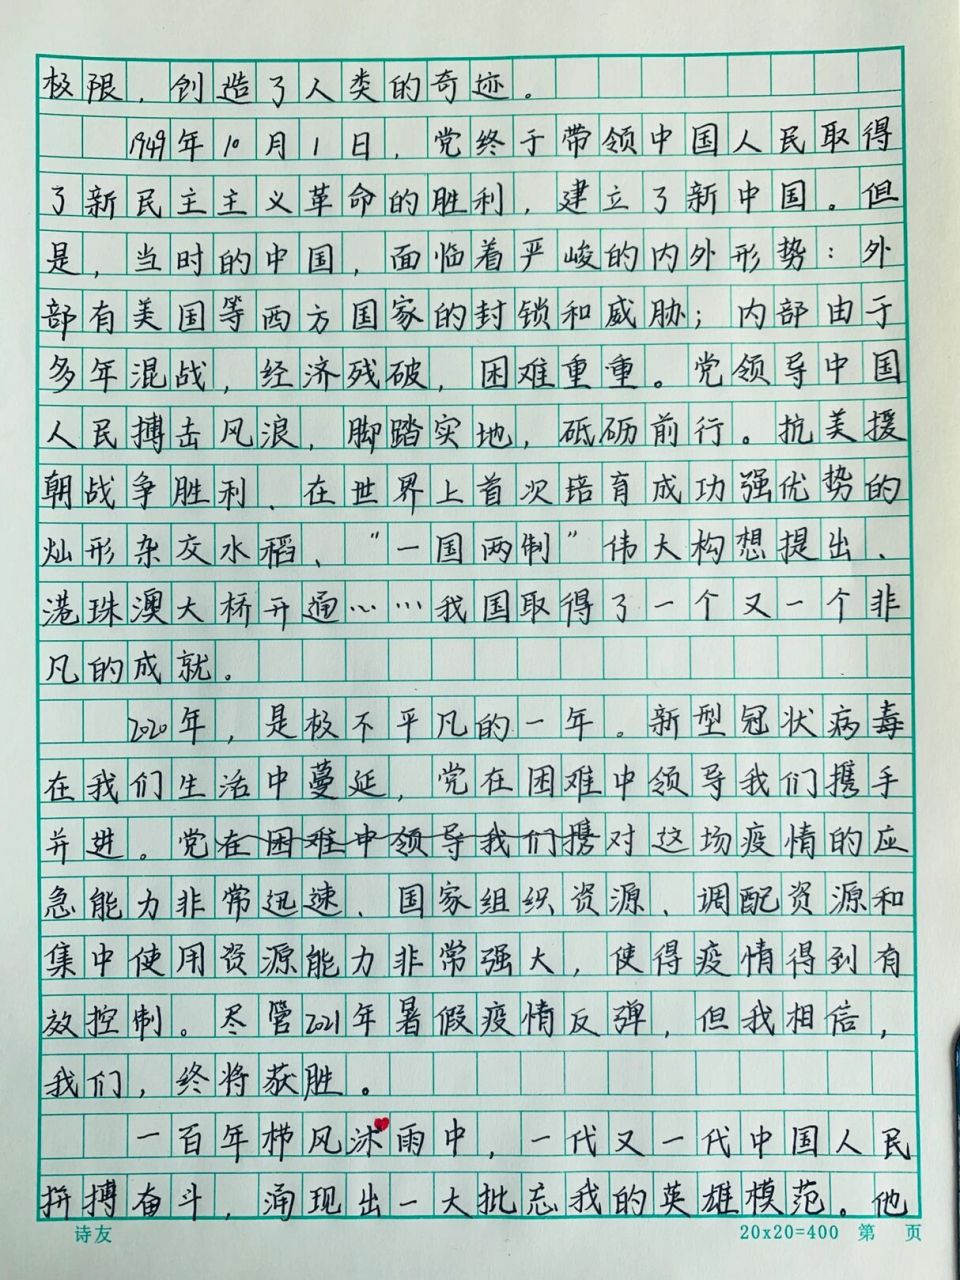 极限，创造了人类的奇迹。
1949年10月1日，党终于带领中国人民取得
了新民主主义革命的胜利，建立了新中国。但
是，当时的中国，面临着严峻的内外形势：外
部有美国等西方国家的封锁和威胁；内部由于
多年混战，经济残破，困难重重。党领导中国
人民搏击风浪，脚踏实地，砥砺前行。抗美援
朝战争胜利、在世界上首次培育成功强优势的
灿形杂交水稻、“一国两制”伟大构想提出、
港珠澳大桥开通……我国取得了一个又一个非
凡的成就。
2020年，是极不平凡的一年。新型冠状病毒
在我们生活中蔓延，党在困难中领导我们携手
并进。党在困难中领导我们携对这场疫情的应
急能力非常迅速、国家组织资源、调配资源和
集中使用资源能力非常强大，使得疫情得到有
效控制。尽管2021年暑假疫情反弹，但我相信，
我们，终将获胜。
一百年栉风沐雨中，一代又一代中国人民
拼搏奋斗，涌现出一大批忘我的英雄模范。他
诗友 20x20=400 第 页